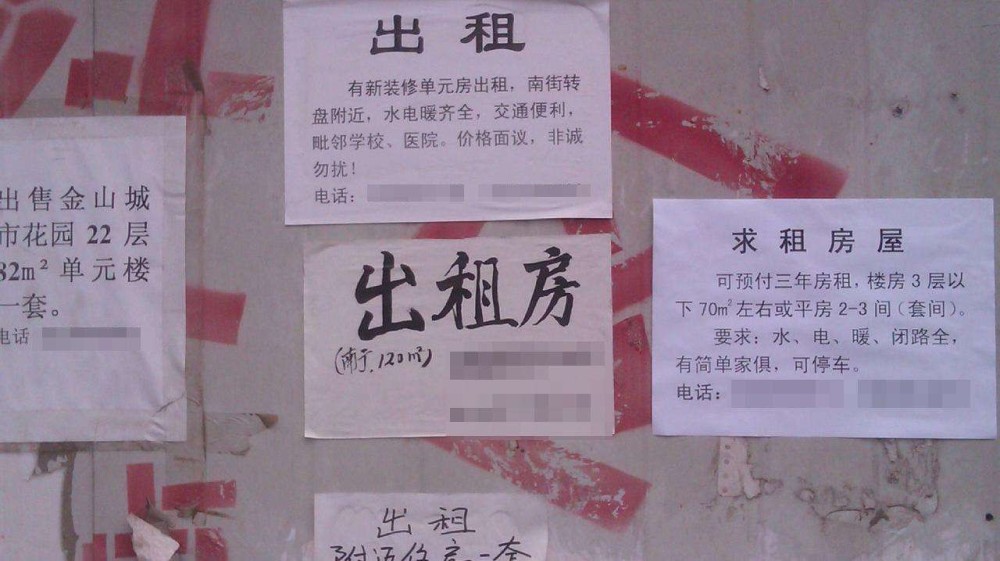 出租
有新装修单元房出租，南街转
盘附近，水电暖齐全，交通便利，
毗邻学校、医院。价格面议，非诚
勿扰！
电话：
出售金山城
市花园 22 层
82m² 单元楼
一套。
电话
出租房
120㎡)
求租房屋
可预付三年房租，楼房 3 层以
下 70㎡左右或平房 2-3 间（套间）。
要求：水、电、暖、闭路全，
有简单家俱，可停车。
电话：
出租
附近住房一套